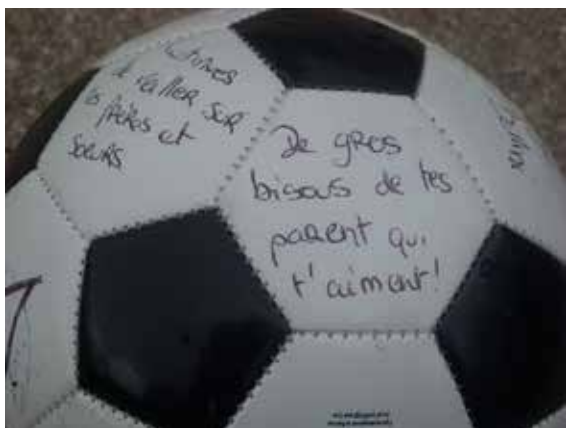 de veiller sur
tes frères et
soeurs
De gros
bisous de tes
parent qui
t'aiment!